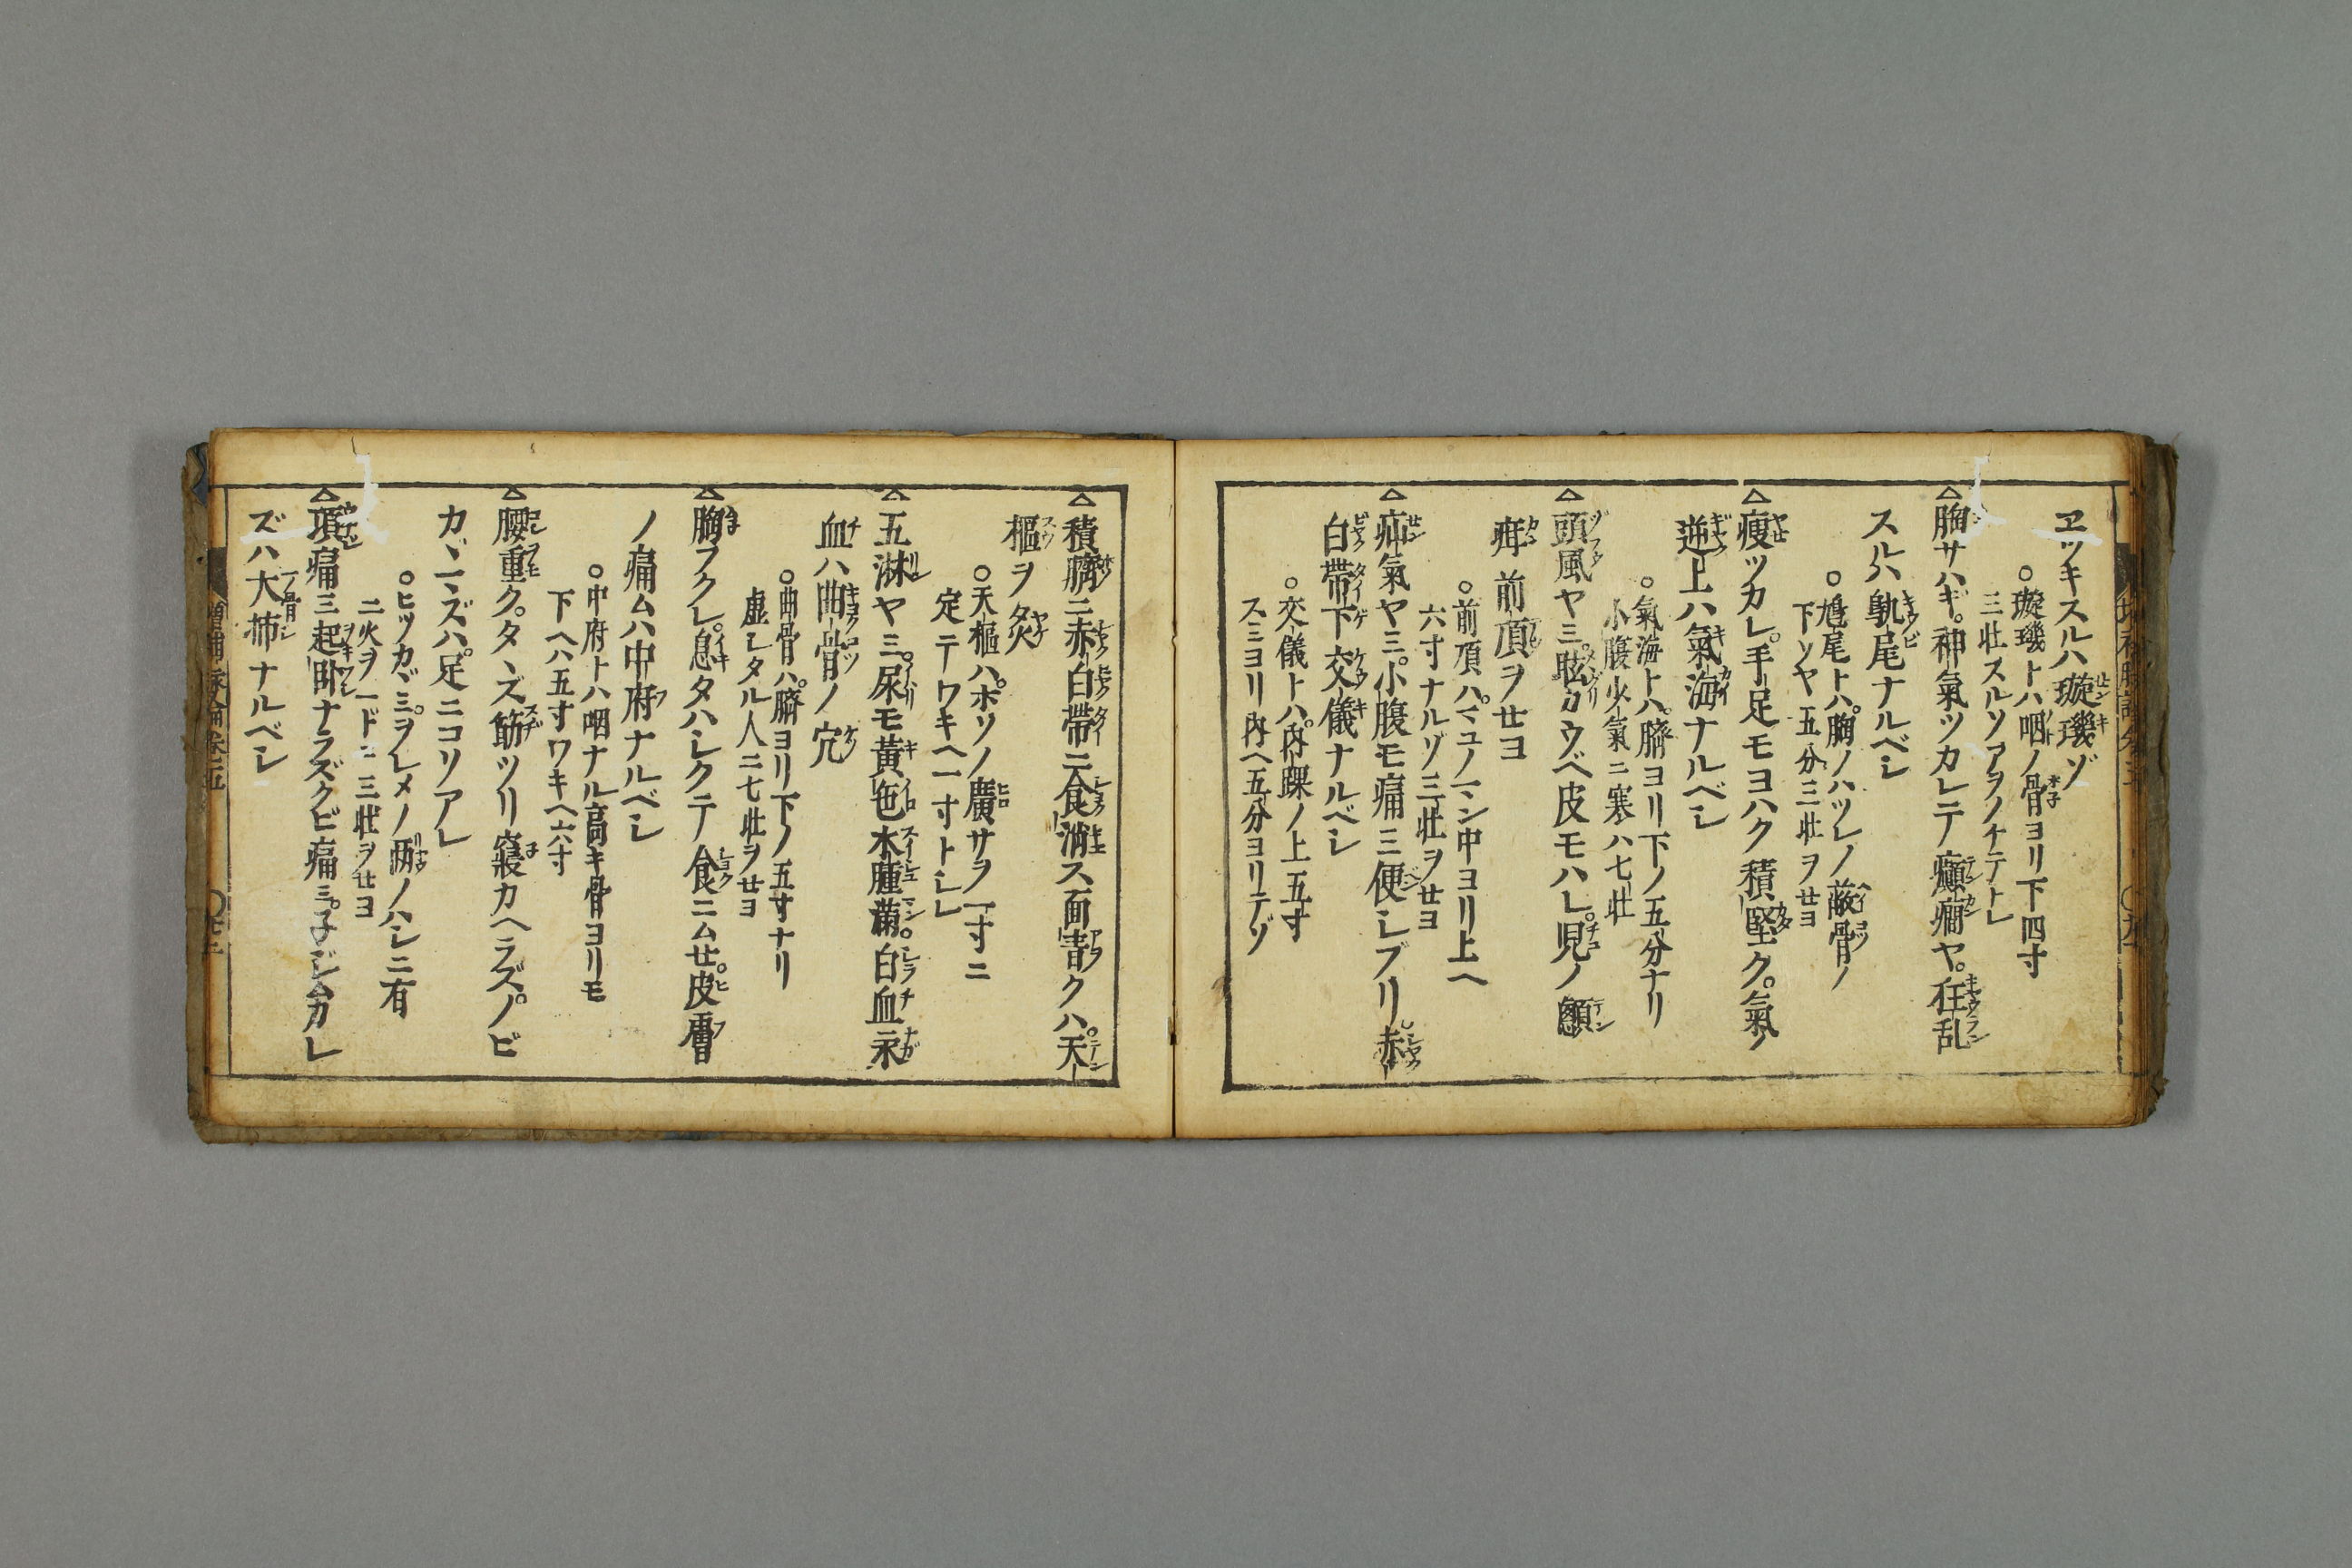 ヱツキスルハ璇璣ゾ
○璇璣トハ咽ノ骨ヨリ下四寸
三壮スルソアヲノケテトレ
△胸サハギ。神氣ツカレテ癲癇ヤ。狂乱
スルハ鳩尾ナルベシ
○鳩尾トハ。胸ノハツレノ蔽骨ノ
下ソヤ五分三壮ヲせヨ
△瘦ツカレ。手足モヨハク積堅ク。氣ノ
逆上ハ氣海ナルベシ
○氣海トハ。臍ヨリ下ノ五分ナリ
小腹火氣ニ寒ハ七壮
△頭風ヤミ。眩カウベ皮モハレ。児ノ顖
疳前頂ヲせヨ
○前頂ハ。マユノマン中ヨリ上ヘ
六寸ナルゾ三壮ヲせヨ
△疝氣ヤミ。小腹モ痛ミ便シブリ。赤
白帶下交儀ナルベシ
○交儀トハ。內踝ノ上五寸
スミヨリ內ヘ五分ヨリテゾ
△積臍ニ赤白帶ニ食消ス面青クハ。天
樞ヲ灸
○天樞ハ。ホソノ廣サヲ一寸ニ
定テワキヘ一寸トシレ
△五淋ヤミ。尿モ黃色水腫滿。白血永
血ハ曲骨ノ穴
○曲骨ハ。臍ヨリ下ノ五寸ナリ
虛シタル人ニ七壮ヲせヨ
△胸フクレ。息タハシクテ食ニムせ。皮膚
ノ痛ムハ中府ナルベシ
○中府トハ咽ナル高キ骨ヨリモ
下ヘハ五寸ワキヘ六寸
△腰重ク。タヽズ筋ツリ寢カヘラズ。ノビ
カヾマズハ。足ニコリアレ
○ヒツカヾミ。ヲレメノ兩ノハシニ有
二火ヲ一ドニ三壯ヲせヨ
△項痛ミ起卧ナラズクビ痛ミ。子ジムカレ
ズハ大杼ナルベシ